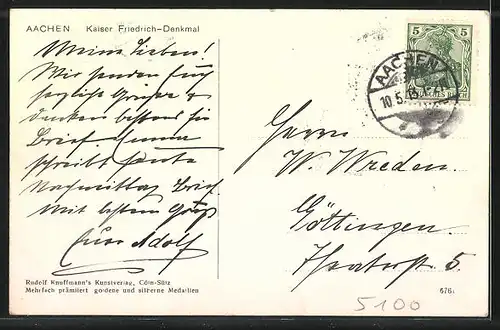 AACHEN Kaiser Friedrich-Denkmal
Meine Lieben!
Wir senden Euch
herzliche Grüsse &
danken bestens für
Brief. Emma
schreibt heute
Nachmittag Brief.
Mit bestem Gruß
Euer Adolf
Rudolf Knuffmann's Kunstverlag, Cöln-Sülz
Mehrfach prämiiert goldene und silberne Medaillen
5 5
DEUTSCHES REICH
AACHEN
10.5.13
Herrn
W. Wreden.
Göttingen.
Theaterstr 5.
676
5100